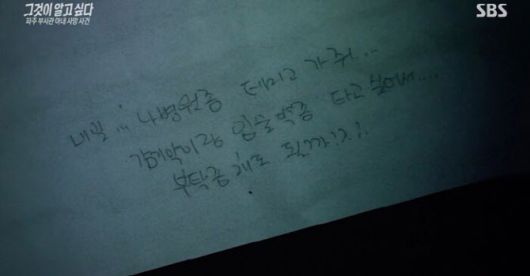 그것이 알고 싶다
파주 부사관 아내 사망 사건
SBS
내일... 나 병원좀 데리고 가줘...
감기약이랑 입술약좀 타고 싶어서....
부탁좀 해도 될까?.?.